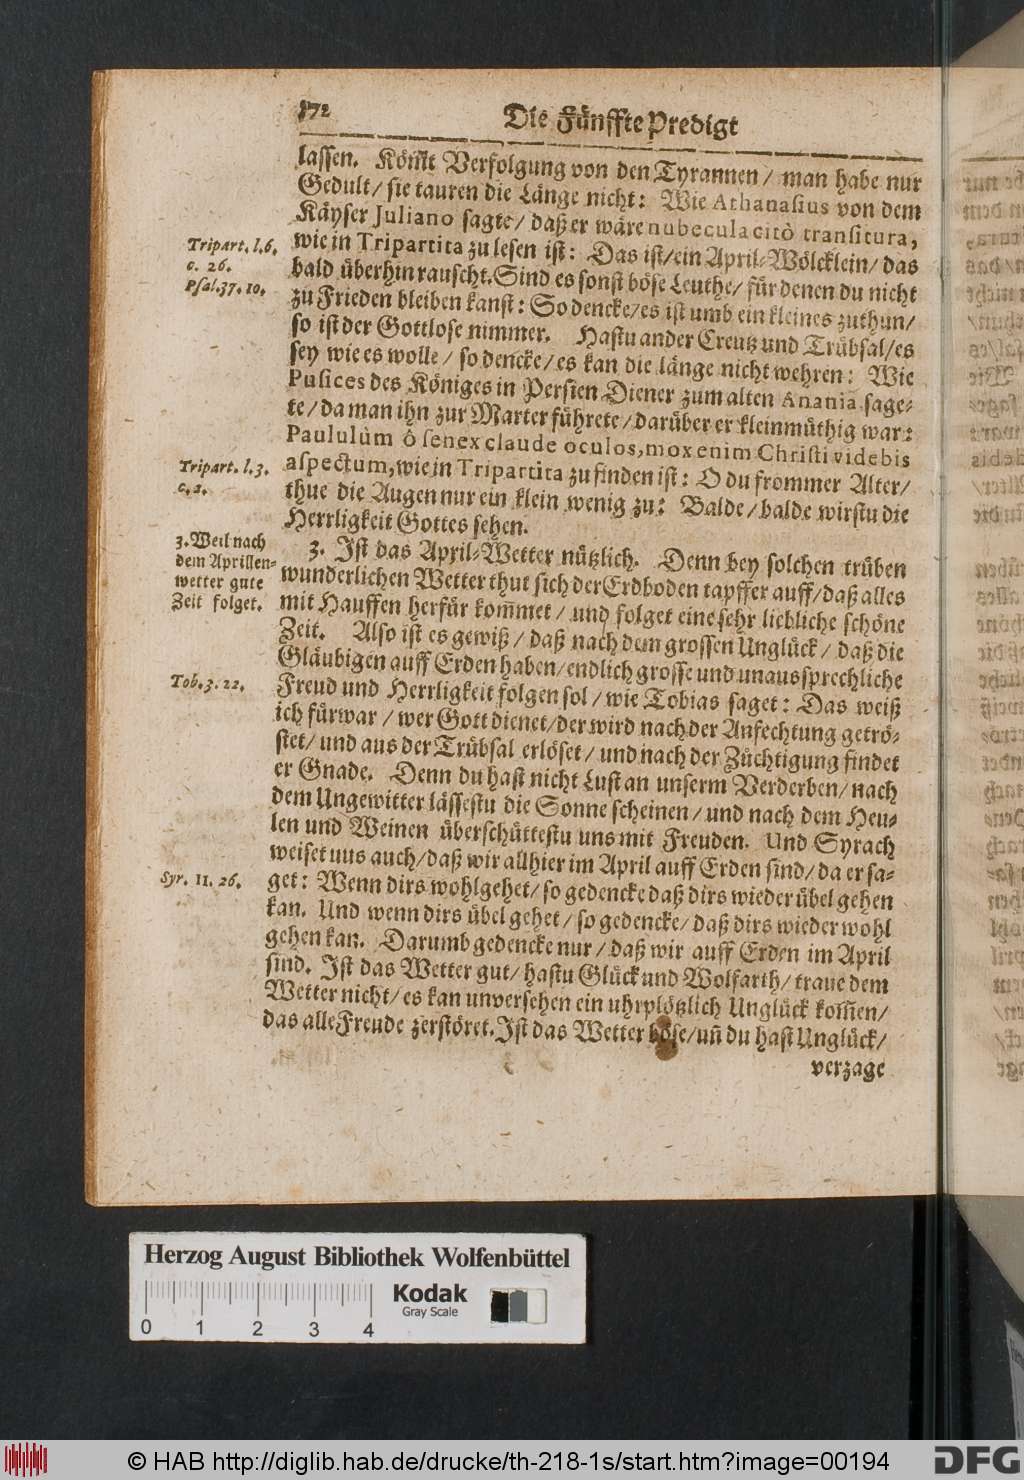 172 Die Fünffte Predigt
lassen. Kömt Verfolgung von den Tyrannen / man habe nur
Gedult / sie tauren die Länge nicht: Wie Athanasius von dem
Käyser Juliano sagte / daß er wäre nubecula citò transitura,
Tripart. l. 6.
c. 26.
wie in Tripartita zu lesen ist: Das ist / ein April-Wölcklein / das
bald überhin rauscht. Sind es sonst böse Leuthe / für denen du nicht
Psal. 37. 10.
zu Frieden bleiben kanst: So dencke / es ist umb ein kleines zuthun /
so ist der Gottlose nimmer. Hastu ander Creutz und Trübsal / es
sey wie es wolle / so dencke / es kan die länge nicht wehren: Wie
Pusices des Königes in Persien Diener zum alten Anania sage-
te / da man ihn zur Marter führete / darüber er kleinmüthig war:
Paululùm ô senex claude oculos, mox enim Christi videbis
Tripart. l. 3.
c. 2.
aspectum, wie in Tripartita zu finden ist: O du frommer Alter /
thue die Augen nur ein klein wenig zu: Balde / balde wirstu die
Herrligkeit Gottes sehen.
3. Weil nach
dem Aprillen-
wetter gute
Zeit folget.
3. Ist das April-Wetter nützlich. Denn bey solchen trüben
wunderlichen Wetter thut sich der Erdboden tapffer auff / daß alles
mit Hauffen herfür kom̃et / und folget eine sehr liebliche schöne
Zeit. Also ist es gewiß / daß nach dem grossen Unglück / daß die
Gläubigen auff Erden haben / endlich grosse und unaussprechliche
Tob. 3. 22.
Freud und Herrligkeit folgen sol / wie Tobias saget: Das weiß
ich fürwar / wer Gott dienet / der wird nach der Anfechtung getrö-
stet / und aus der Trübsal erlöset / und nach der Züchtigung findet
er Gnade. Denn du hast nicht Lust an unserm Verderben / nach
dem Ungewitter lässestu die Sonne scheinen / und nach dem Heu-
len und Weinen überschüttestu uns mit Freuden. Und Syrach
weiset uus auch / daß wir allhier im April auff Erden sind / da er sa-
Syr. 11. 26.
get: Wenn dirs wohlgehet / so gedencke daß dirs wieder übel gehen
kan. Und wenn dirs übel gehet / so gedencke / daß dirs wieder wohl
gehen kan. Darumb gedencke nur / daß wir auff Erden im April
sind. Ist das Wetter gut / hastu Glück und Wolfarth / traue dem
Wetter nicht / es kan unversehen ein uhrplötzlich Unglück kom̃en /
das alle Freude zerstöret. Ist das Wetter böse / uñ du hast Unglück /
verzage
Herzog August Bibliothek Wolfenbüttel
Kodak
Gray Scale
0 1 2 3 4
© HAB http://diglib.hab.de/drucke/th-218-1s/start.htm?image=00194
DFG